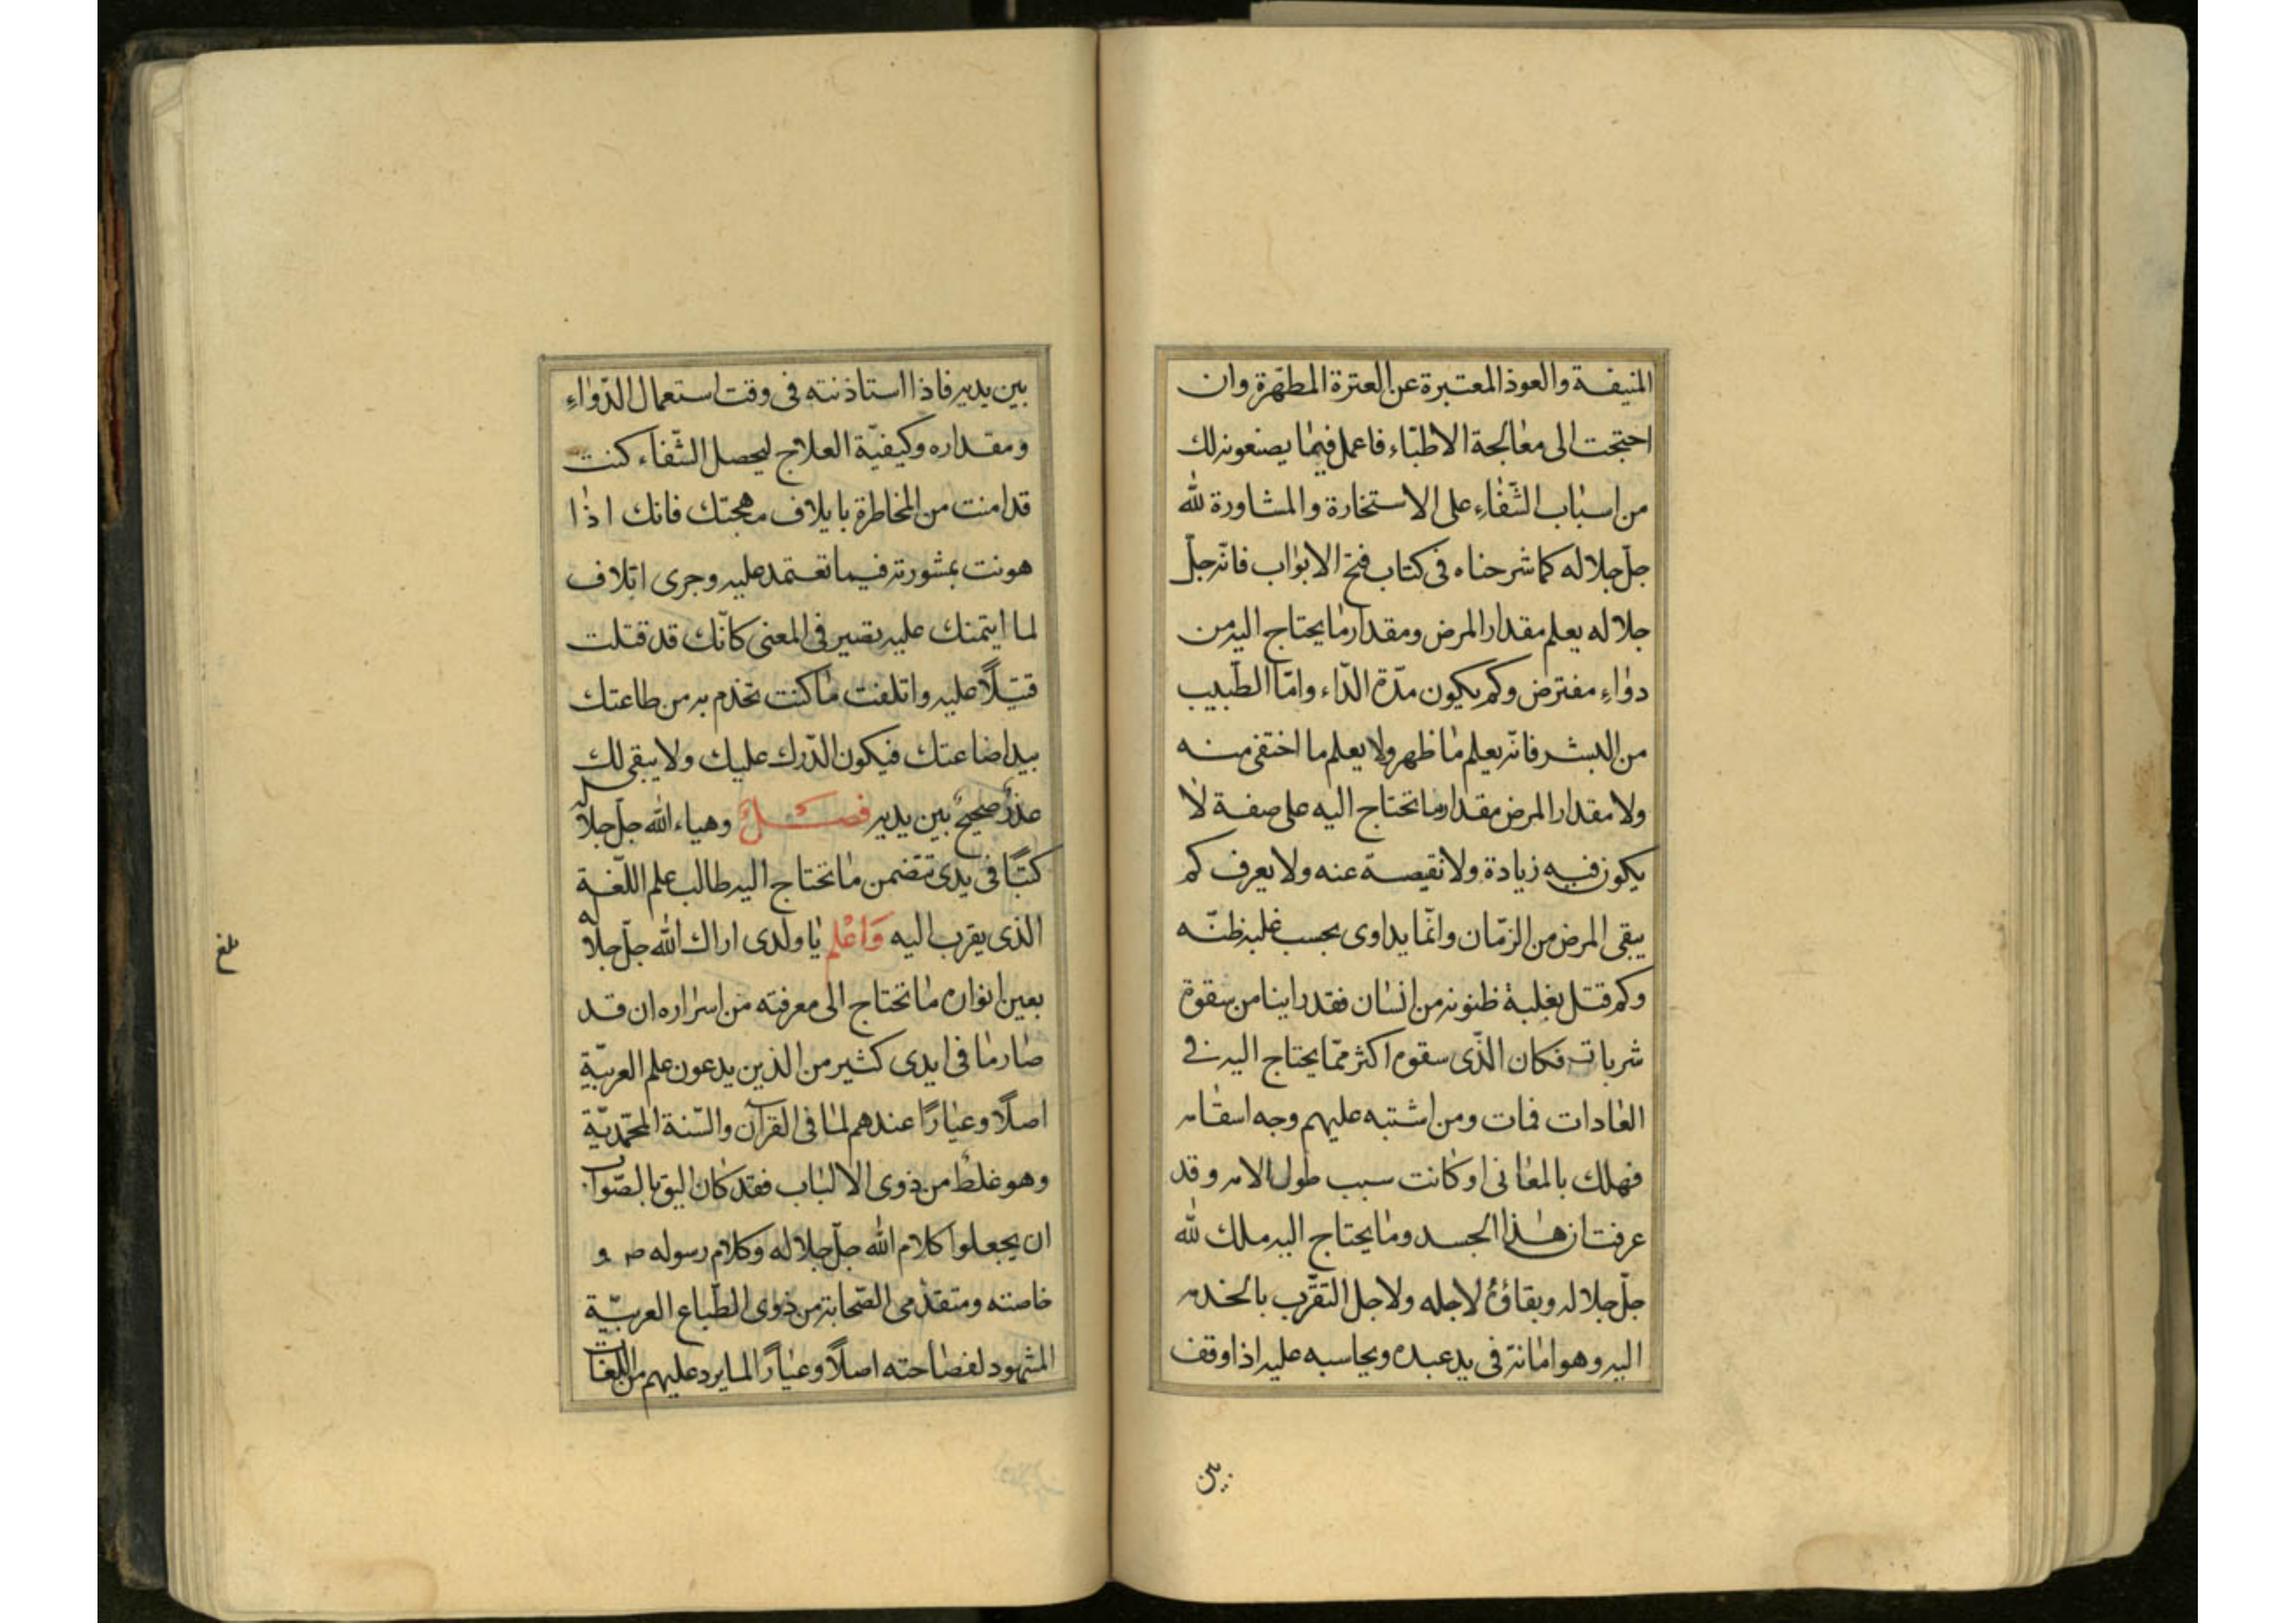 المنيفة والعوذ المعتبرة عن العترة المطهّرة وان
احتجت الى معالجة الاطبّاء فاعمل فيما يصنعونه لك
من اسباب الشّفاء على الاستخارة والمشاورة لله
جلّ جلاله كما شرحناه فى كتاب فتح الابواب فانّه جلّ
جلاله يعلم مقدار المرض ومقدار ما يحتاج اليه من
دواءٍ مفترض وكم يكون مدّة الدّاء وامّا الطّبيب
من البشر فانّه يعلم ما ظهر ولا يعلم ما اختفى منه
ولا مقدار المرض مقدار ما تحتاج اليه على صفة لا
يكون فيه زيادة ولا نقيصة عنه ولا يعرف كم
يبقى المرض من الزّمان وانّما يداوى بحسب غلبة ظنّه
وكم قتل بغلبة ظنونه من انسان فقد راينا من سقوة
شربات فكان الذّى سقوه اكثر ممّا يحتاج اليه فى
العادات فمات ومن اشتبه عليهم وجه اسقامه
فهلك بالمعانى او كانت سبب طول الامه وقد
عرفت ان هذا الجسد وما يحتاج اليه ملك لله
جلّ جلاله وبقاؤُ لاجله ولاجل التقرّب بالخدمه
اليه وهو امانة فى يد عبده ويحاسبه عليه اذا وقف
بين
بين يديه فاذا استاذنته فى وقت استعمال الدّواءِ
ومقداره وكيفيّة العلاج ليحصل الشّفاء كنت
قد امنت من المخاطرة بايلاف مهجتك فانك اذا
هونت بمشورته فيما تعتمد عليه وجرى اتلاف
لما ايتمنك عليه تصير فى المعنى كانّك قد قتلت
قتيلًا عليه واتلفت ما كنت تخذم به من طاعتك
بيد اضاعتك فيكون الدّرك عليك ولا يبقى لك
عذرٌ صحيحٌ بين يديه فصلٌ وهياء الله جلّ جلاله
كتبًا فى يدى تتضمن ما تحتاج اليه طالب علم اللّغة
الذى يقرب اليه وَاعْلم يا ولدى اراك الله جلّ جلاله
بعين انواره ما تحتاج الى معرفته من اسراره ان قد
صار ما فى ايدى كثير من الذين يدعون علم العربيّة
اصلًا وعيارًا عندهم لما فى القرآن والسّنة المحمّديّة
وهو غلطٌ من ذوى الالباب فقد كان اليق بالصّواب
ان يجعلوا كلام الله جلّ جلاله وكلام رسوله ص و
خاصته ومتقدّمى الصّحابة من ذوى الطّباع العربيّة
المشهود لفصاحته اصلًا وعيارًا لما يرد عليهم من اللّغات
بلغ